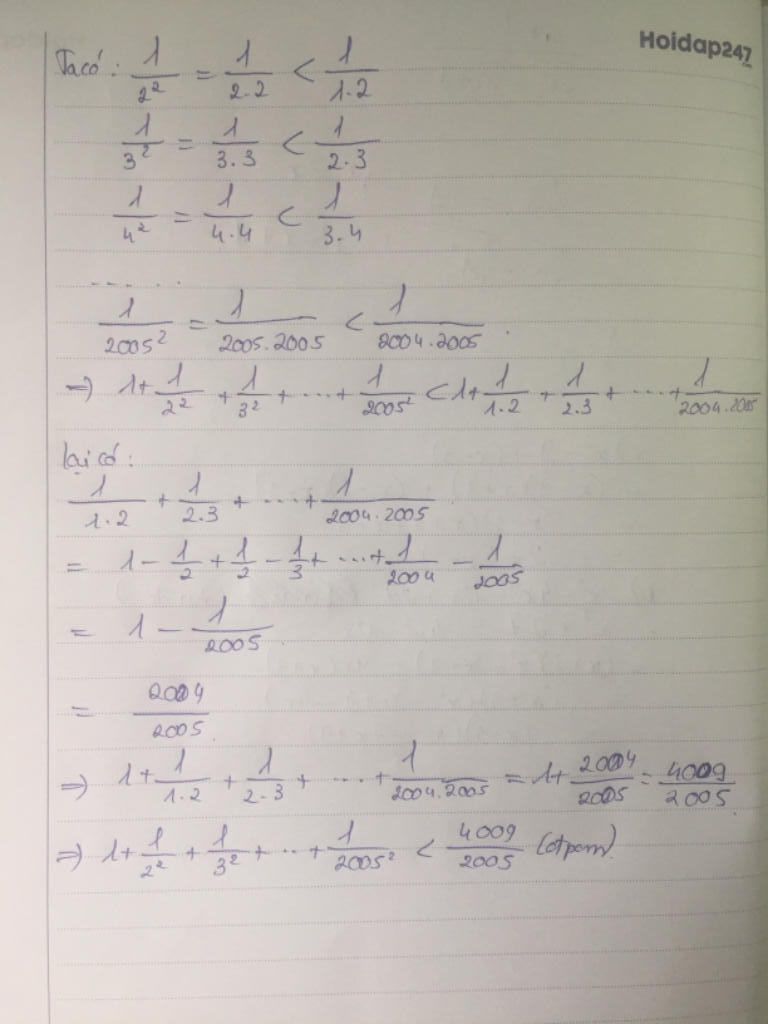 Hoidap247
Ta có: 1/2² = 1/2.2 < 1/1.2
1/3² = 1/3.3 < 1/2.3
1/4² = 1/4.4 < 1/3.4
.......
1/2005² = 1/2005.2005 < 1/2004.2005.
=> 1+1/2² + 1/3² + ... + 1/2005² < 1+1/1.2 + 1/2.3 + ... + 1/2004.2005
lại có:
1/1.2 + 1/2.3 + ... + 1/2004.2005
= 1 - 1/2 + 1/2 - 1/3 + ... + 1/2004 - 1/2005
= 1 - 1/2005.
= 2004/2005.
=> 1+1/1.2 + 1/2.3 + ... + 1/2004.2005 = 1+2004/2005 = 4009/2005.
=> 1+1/2² + 1/3² + .. + 1/2005² < 4009/2005 (đpcm)